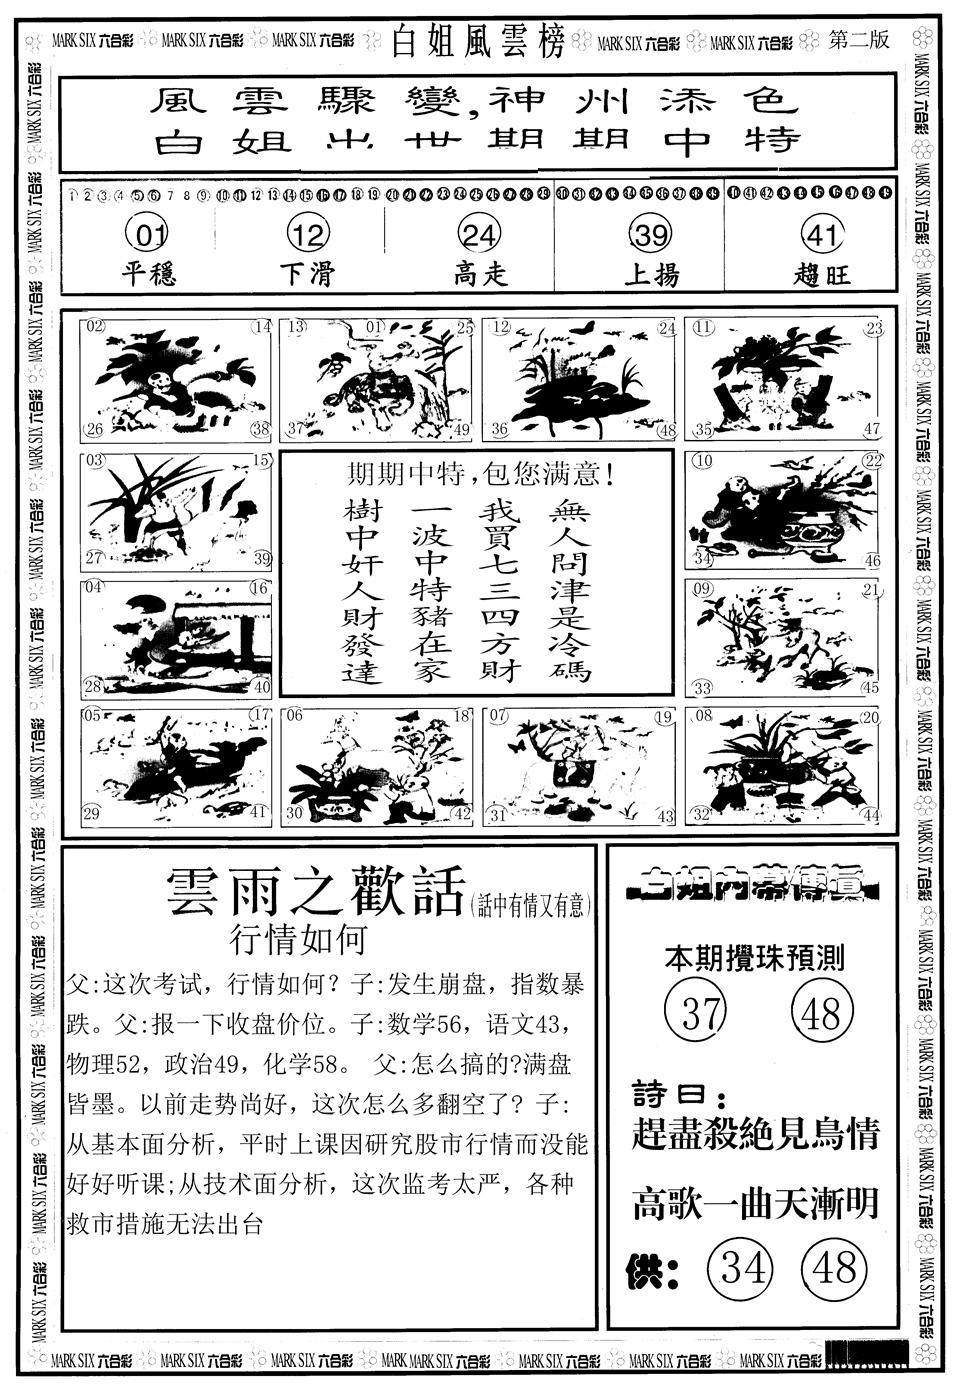 MARK SIX 六合彩 MARK SIX 六合彩 MARK SIX 六合彩 白姐風雲榜 MARK SIX 六合彩 MARK SIX 六合彩 第二版
風雲驟變,神州添色
白姐出世期期中特
1 2 3 4 5 6 7 8 9 10 11 12 13 14 15 16 17 18 19 20 21 22 23 24 25 26 27 28 29 30 31 32 33 34 35 36 37 38 39 40 41 42 43 44 45 46 47 48 49
01 12 24 39 41
平穩 下滑 高走 上揚 趨旺
02 14 13 01 25 12 24 11 23
26 38 37 49 36 48 35 47
03 15 10 22
27 39 34 46
04 16 09 21
28 40 33 45
05 17 06 18 07 19 08 20
29 41 30 42 31 43 32 44
期期中特,包您满意!
無人問津是冷碼
我買七三四方財
一波中特豬在家
樹中奸人財發達
雲雨之歡話(話中有情又有意)
行情如何
父:这次考试，行情如何？子:发生崩盘，指数暴
跌。父:报一下收盘价位。子:数学56，语文43，
物理52，政治49，化学58。 父:怎么搞的?满盘
皆墨。以前走势尚好，这次怎么多翻空了？子:
从基本面分析，平时上课因研究股市行情而没能
好好听课;从技术面分析，这次监考太严，各种
救市措施无法出台
白姐内幕傳真
本期攪珠預測
37 48
詩曰:
趕盡殺絕見鳥情
高歌一曲天漸明
供: 34 48
MARK SIX 六合彩 MARK SIX 六合彩 MARK SIX 六合彩 MARK MARK SIX 六合彩 MARK SIX 六合彩 MARK SIX 六合彩 MARK SIX 六合彩